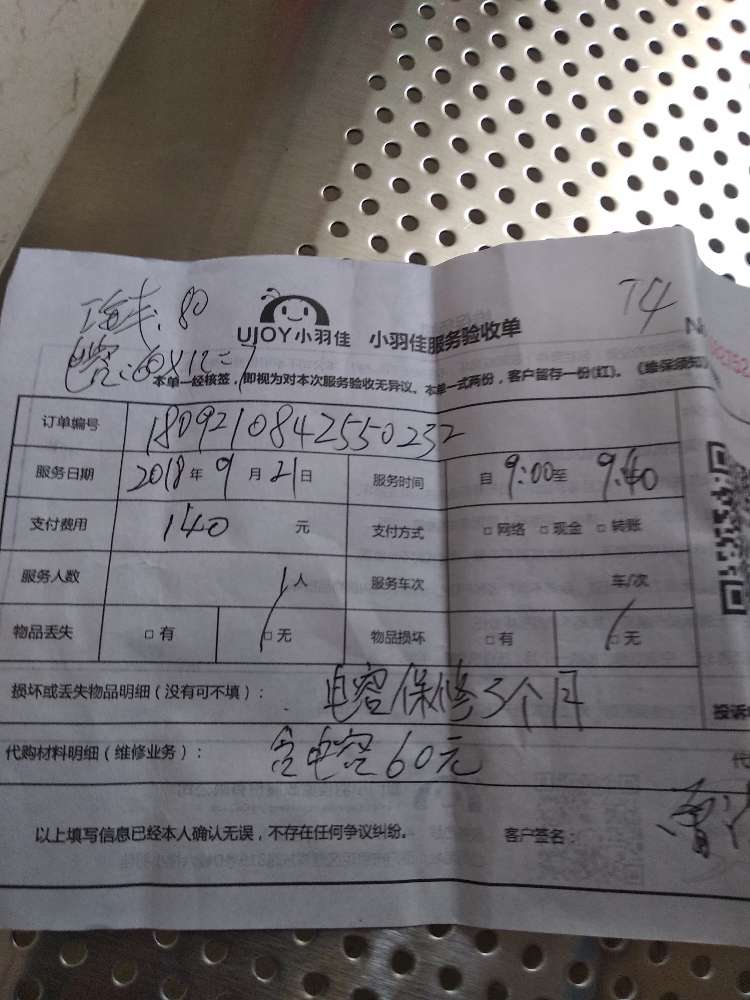 工时费:80 T4
UJOY小羽佳 小羽佳服务验收单 No
电容:60X1=
本单一经核签，即视为对本次服务验收无异议。本单一式两份，客户留存一份(红)。《维保须知》
订单编号 1809210842550232
服务日期 2018年9月21日 服务时间 自9:00至9:40
支付费用 140 元 支付方式 □网络 □现金 □转账
服务人数 1人 服务车次 车/次
物品丢失 □有 □无 物品损坏 □有 □无
损坏或丢失物品明细（没有可不填）： 电容保修3个月
投诉
代购材料明细（维修业务）： 含电容60元 代
以上填写信息已经本人确认无误，不存在任何争议纠纷。 客户签名：